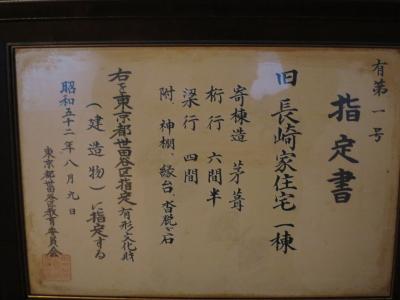 有第一号
指定書
旧長崎家住宅一棟
寄棟造 茅葺
桁行 六間半
梁行 四間
附、神棚、縁台、沓脱ぎ石
右を東京都世田谷区指定有形文化財
(建造物)に指定する
昭和五十二年八月九日
東京都世田谷区教育委員会